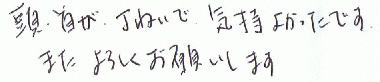 頭、首が、丁ねいで 気持よかったです
またよろしくお願いします